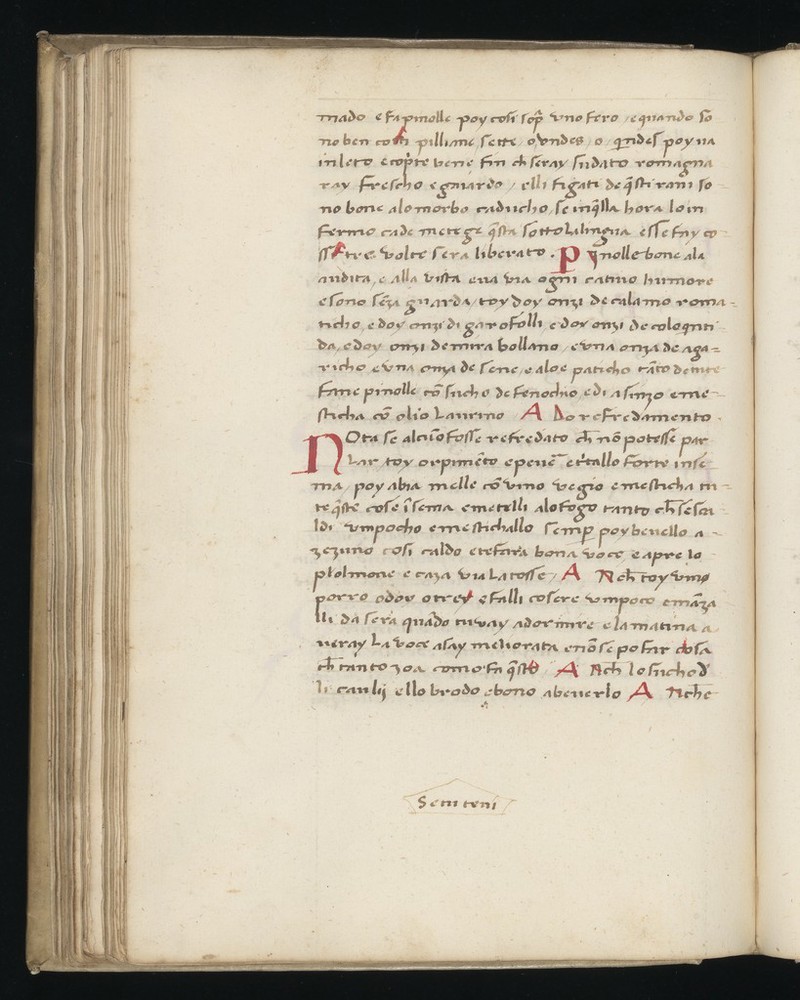 mado e fa pinolle poy cosi sop̄ vno fero, e quando so
no ben cotti pilliane sette, o vndes, o, q̄ndes poy va
in leto e cop̄te bene fin ch̄ seray sudato romagna
ray frescho e gaiardo, elli figati de q̄sti rani so
no bone alo morbo caducho, se in q̄lla hora lo in
fermo cade mete ge q̄sta sotto la lingua e esse fay co
ssi tre volte sera liberato. Pinolle bone ala
audita, e alla vista e ua via ogni catiuo humore
e sono sēza guarda, toy doy onzi de calamo roma-
ticho, e doy onzi di garofolli e doy onzi de coloq̄nti
da, e doy onzi de mira bollano, e vna onza de aga-
richo e vna onza de sene, e aloe paticho tāto de tute
fane pinolle cō sucho de fenochio, e di asinzo e me-
sticha cō olio Laurino A Do refredamento.
NOta se alcūo fosse refredato ch̄ nō potesse par
lar, toy orpimēto e peuē e t'tallo forte inse
ma, poy abia melle cō vino vegio e mesticha tu-
te q̄ste cose īsema e metelli alo fogo tanto ch̄ se sca
ldi vmpocho e mestichallo semp̄ poy beuello a-
zezuno cosi caldo e te fara bona voce, e apre lo
plolmone e caza via La tosse, A Nch̄ toy vno
porro o doy o tre, e falli cosere vmpoco e māza
lli da sera quādo tu vay a dormire e la matina a
ueray La voce asay meliorata e nō se po far cosa
ch̄ tanto zoa como fa q̄sto A Nch̄ lo sucho d'
li caulij ello brodo e bono a beuerlo A Nche